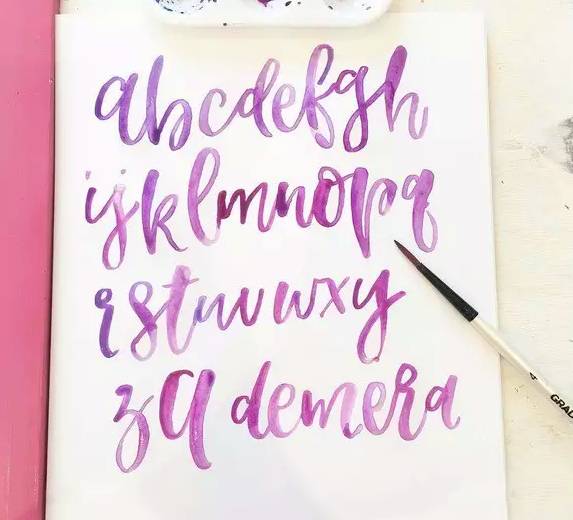 abcdefgh
ijklmnopq
rstuvwxy
zq demera
GRAD